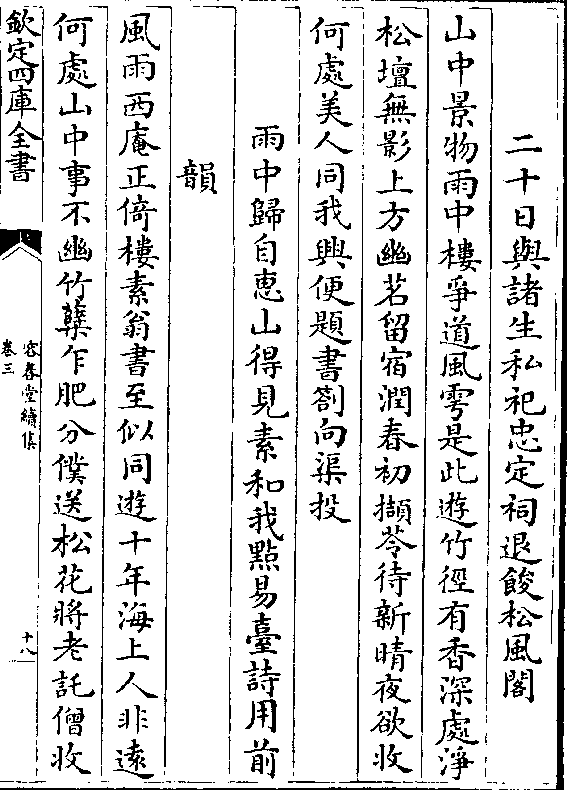 二十日與諸生私祀忠定祠退餕松風閣
山中景物雨中樓爭道風雩是此遊竹徑有香深處淨
松壇無影上方幽茗留宿潤春初擷苓待新晴夜欲收
何處美人同我興便題書劄向渠投
雨中歸自惠山得見素和我點易臺詩用前
韻
風雨西庵正倚樓素翁書至似同遊十年海上人非遠
何處山中事不幽竹糵乍肥分僕送松花將老託僧收
欽定四庫全書
容春堂續集
卷三
十八